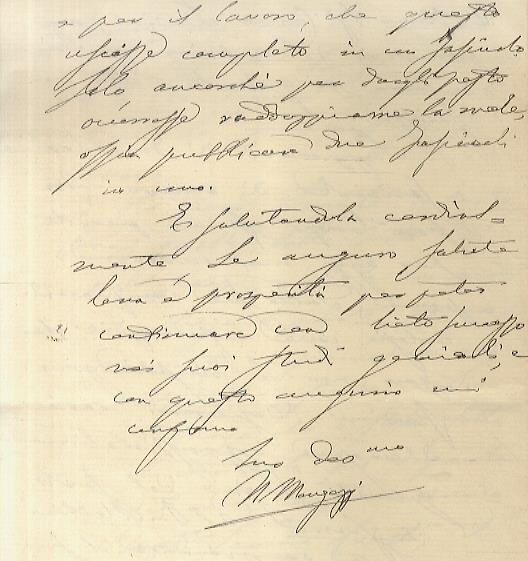 e per il lavoro, che questo
uscisse completo in un fascicolo
solo ancorchè per dargli posto
occoresse raddoppiarne la mole,
ossia pubblicare due fascicoli
in uno.
E salutandola cordial-
mente Le auguro salute
lena e prosperità per poter
continuare con lieto successo
nei suoi studi geniali, e
con questo augurio mi
confermo
Suo Devmo